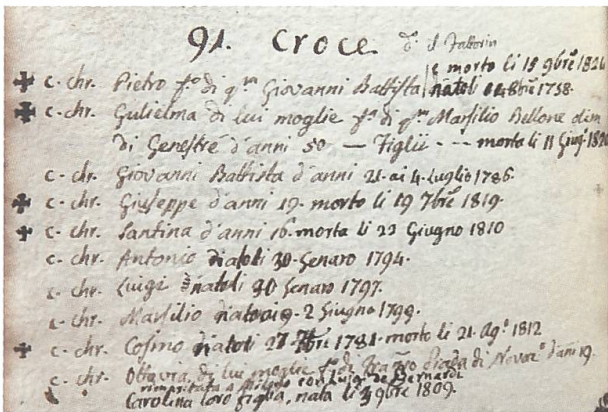 91. Croce
è morto li 15 9bre 1826
✠ c. chr. Pietro fo di qm Giovanni Battista natoli 8bre 1758.
✠ c. chr. Gulielma di lui moglie fa di qm Marsilio Bellone
di Genestre d'anni 50 — Figlii - - - morta li 11 Giugo
c. chr. Giovanni Battista d'anni 21. ai 4. Luglio 1786.
✠ c. chr. Giuseppe d'anni 19. morto li 19 7bre 1819.
✠ c. chr. Santina d'anni 16. morta li 23 Giugno 1810
c. chr. Antonio natoli 30. Genaro 1794.
c. chr. Luigi natoli 30 Genaro 1797.
c. chr. Marsilio natoai 2 Giugno 1799.
✠ c. chr. Cosimo natoli 27 7bre 1781. morto li 21. Ago 1812
c. chr. Ottavia di lui moglie fa di di d'anni 19.
rimaritata a con Luigi de Bernardi
Carolina loro figlia, nata li 3 9bre 1809.